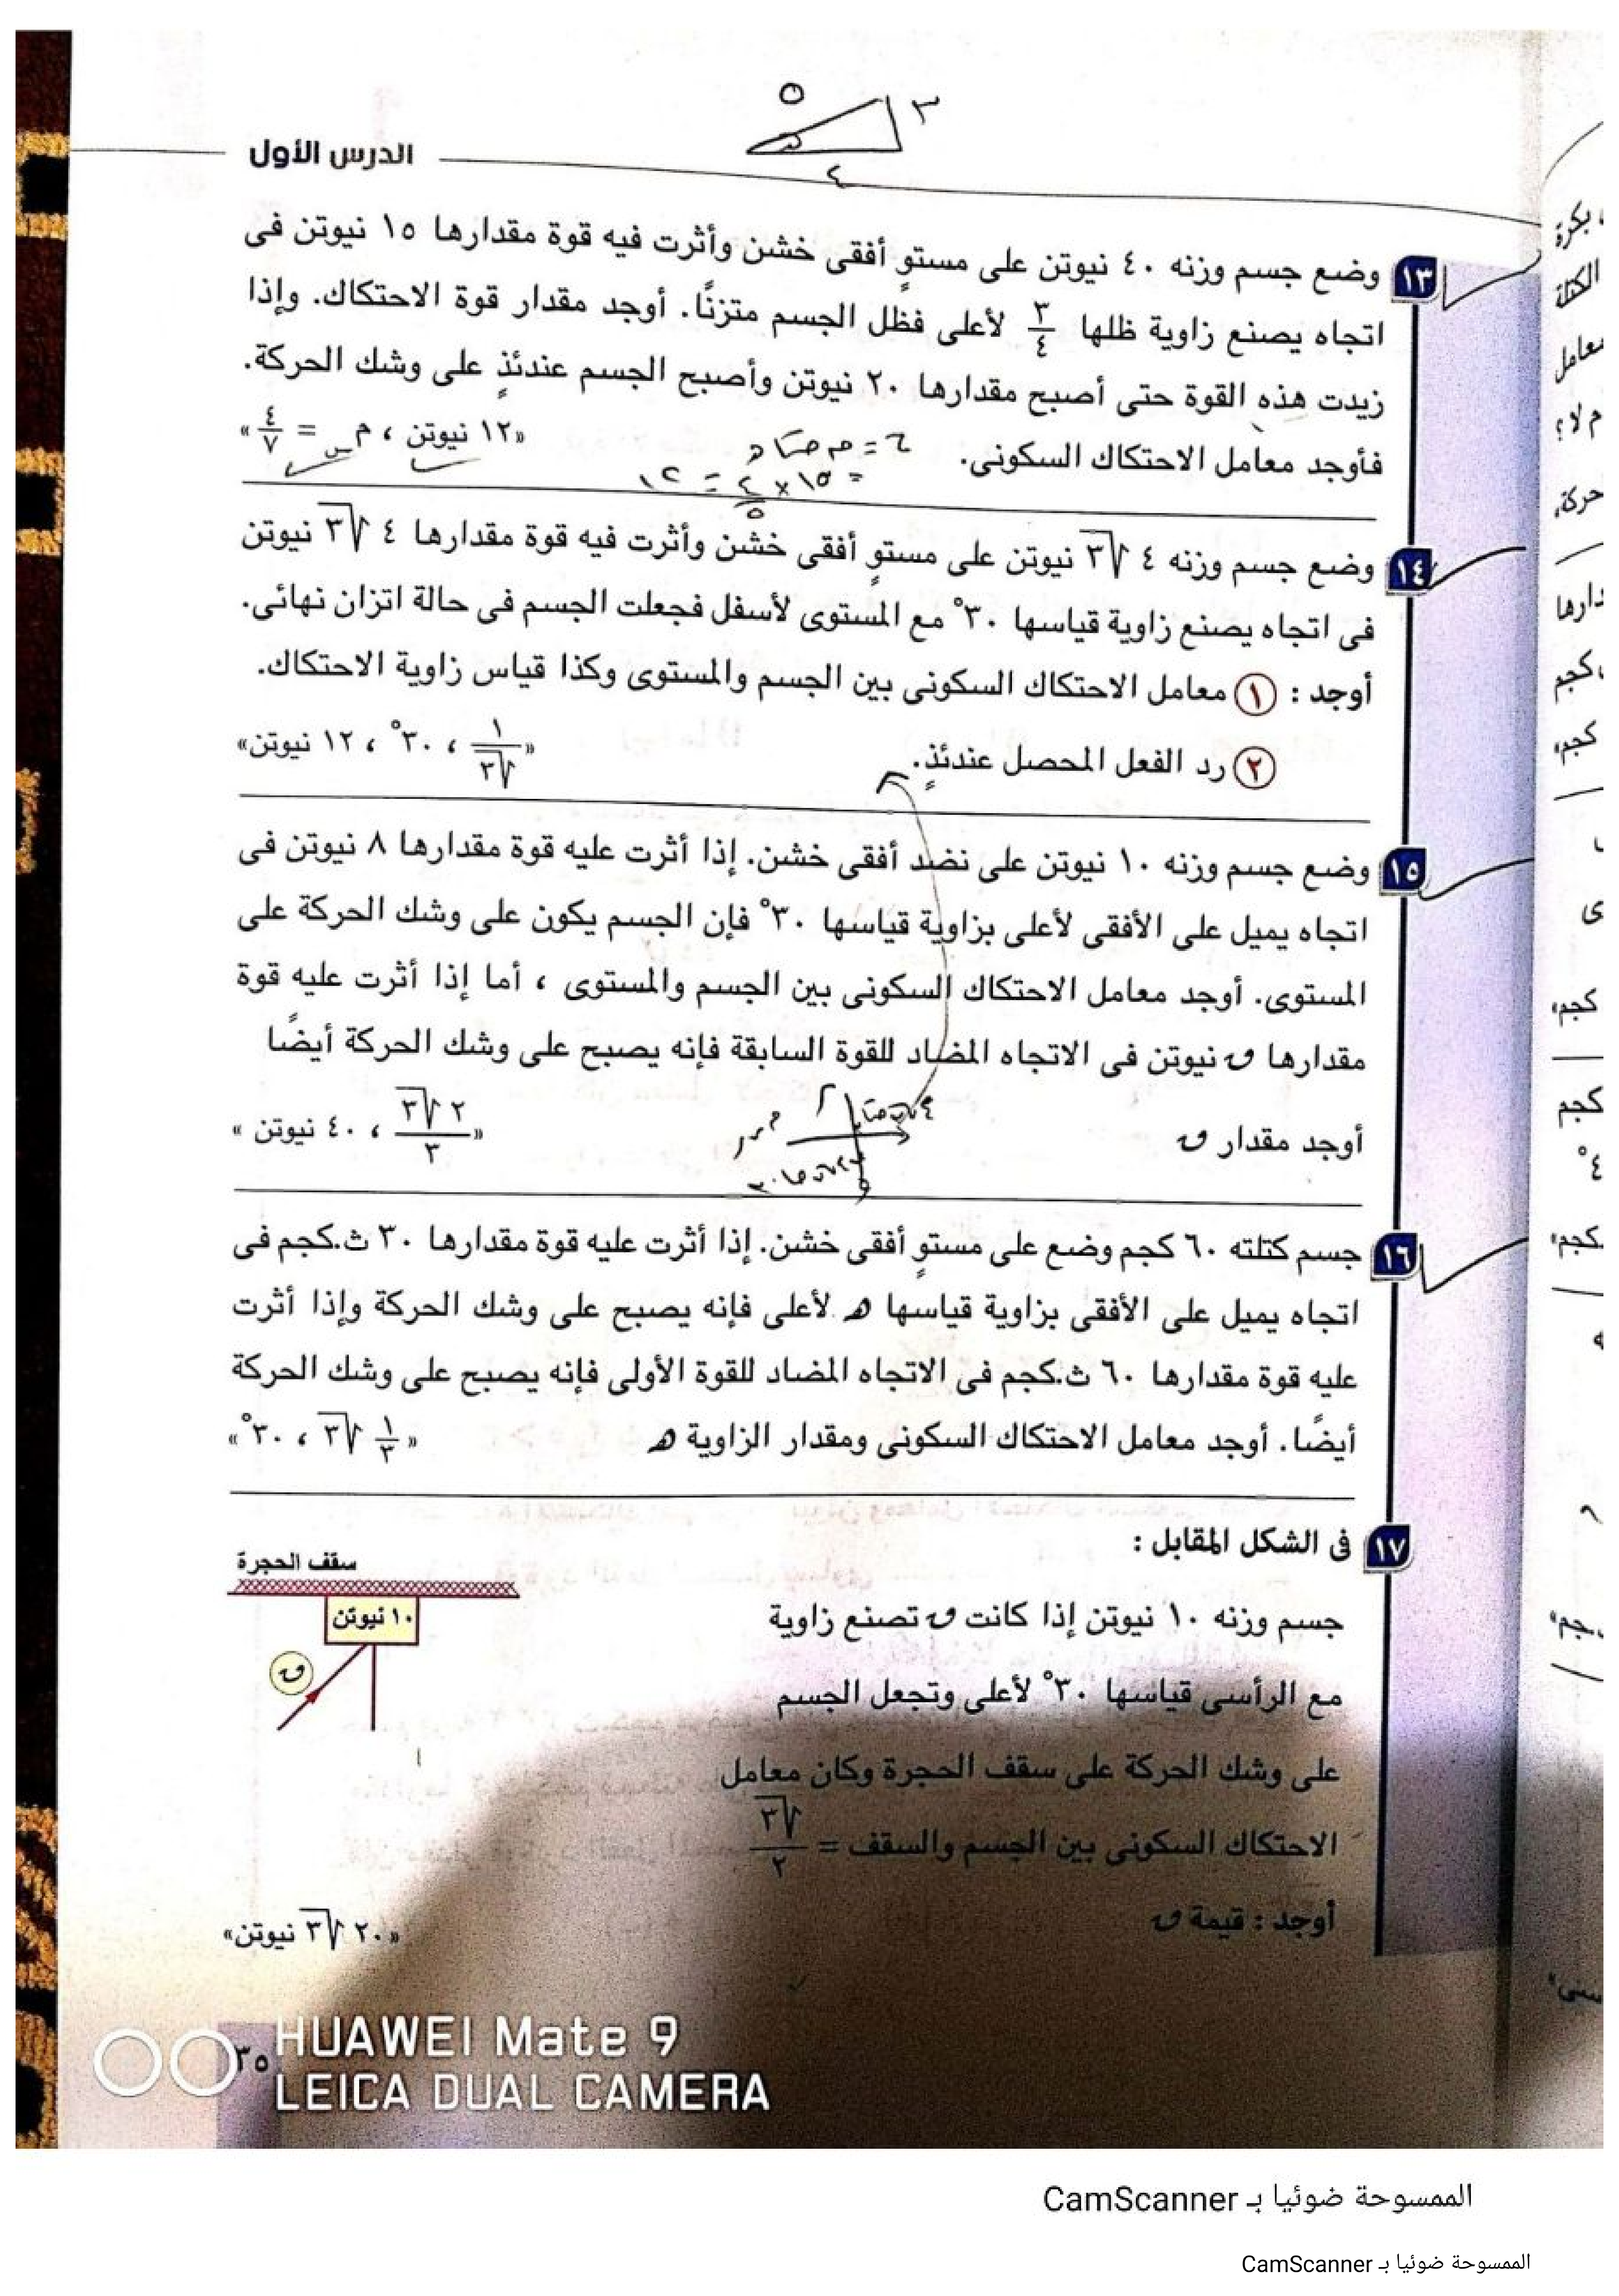 ٥
٣
٤
الدرس الأول
١٣ وضع جسم وزنه ٤٠ نيوتن على مستوٍ أفقى خشن وأثرت فيه قوة مقدارها ١٥ نيوتن فى
اتجاه يصنع زاوية ظلها ٣/٤ لأعلى فظل الجسم متزنًا. أوجد مقدار قوة الاحتكاك. وإذا
زيدت هذه القوة حتى أصبح مقدارها ٢٠ نيوتن وأصبح الجسم عندئذٍ على وشك الحركة.
فأوجد معامل الاحتكاك السكونى. «١٢ نيوتن ، م س = ٤/٧»
= ١٥ × ٤/٥ = ١٢
١٤ وضع جسم وزنه ٤√٣ نيوتن على مستوٍ أفقى خشن وأثرت فيه قوة مقدارها ٤√٣ نيوتن
فى اتجاه يصنع زاوية قياسها ٣٠° مع المستوى لأسفل فجعلت الجسم فى حالة اتزان نهائى.
أوجد : ١ معامل الاحتكاك السكونى بين الجسم والمستوى وكذا قياس زاوية الاحتكاك.
٢ رد الفعل المحصل عندئذٍ. «١/√٣ ، ٣٠° ، ١٢ نيوتن»
١٥ وضع جسم وزنه ١٠ نيوتن على نضد أفقى خشن. إذا أثرت عليه قوة مقدارها ٨ نيوتن فى
اتجاه يميل على الأفقى لأعلى بزاوية قياسها ٣٠° فإن الجسم يكون على وشك الحركة على
المستوى. أوجد معامل الاحتكاك السكونى بين الجسم والمستوى ، أما إذا أثرت عليه قوة
مقدارها ق نيوتن فى الاتجاه المضاد للقوة السابقة فإنه يصبح على وشك الحركة أيضًا
أوجد مقدار ق «٢√٣/٣ ، ٤٠ نيوتن»
١٦ جسم كتلته ٦٠ كجم وضع على مستوٍ أفقى خشن. إذا أثرت عليه قوة مقدارها ٣٠ ث.كجم فى
اتجاه يميل على الأفقى بزاوية قياسها هـ لأعلى فإنه يصبح على وشك الحركة وإذا أثرت
عليه قوة مقدارها ٦٠ ث.كجم فى الاتجاه المضاد للقوة الأولى فإنه يصبح على وشك الحركة
أيضًا. أوجد معامل الاحتكاك السكونى ومقدار الزاوية هـ «١/٣ √٣ ، ٣٠°»
١٧ فى الشكل المقابل :
سقف الحجرة
١٠ نيوتن
ق
جسم وزنه ١٠ نيوتن إذا كانت ق تصنع زاوية
مع الرأسى قياسها ٣٠° لأعلى وتجعل الجسم
على وشك الحركة على سقف الحجرة وكان معامل
الاحتكاك السكونى بين الجسم والسقف = √٣/٢
أوجد : قيمة ق «٢٠√٣ نيوتن»
٣٥
HUAWEI Mate 9
LEICA DUAL CAMERA
الممسوحة ضوئيا بـ CamScanner
الممسوحة ضوئيا بـ CamScanner